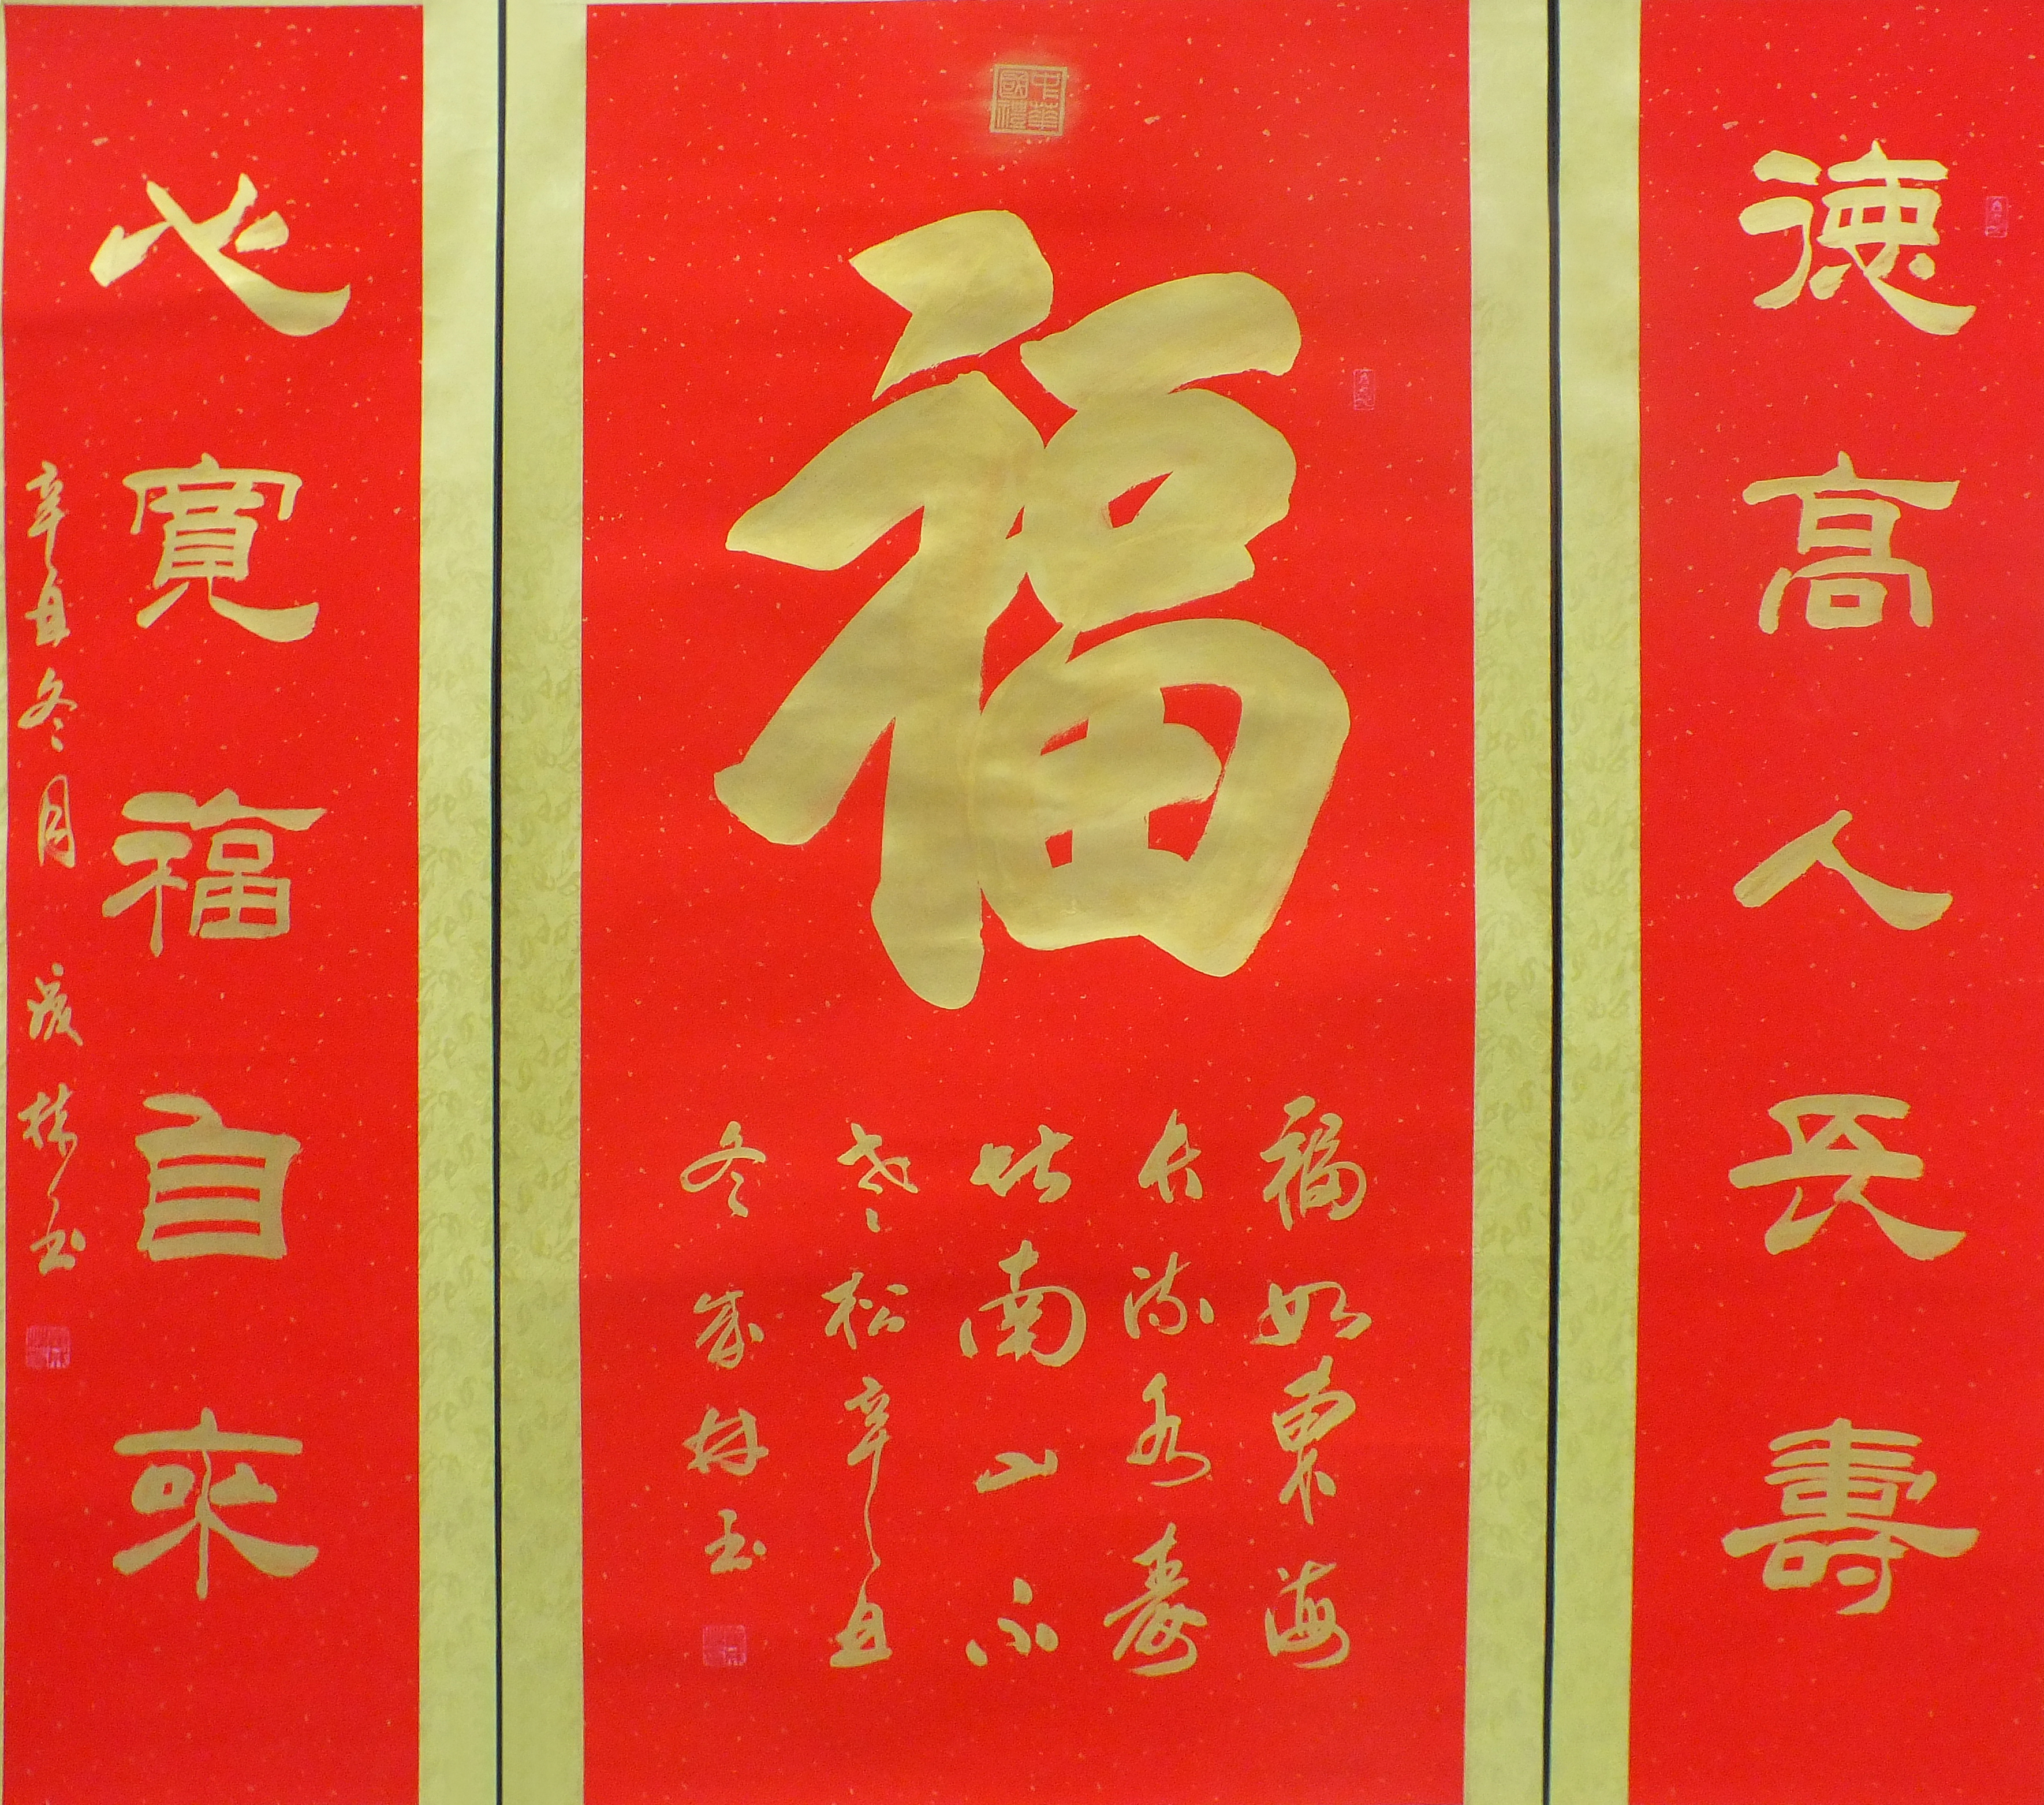 德高人長壽
中華國禮
福
福如東海
長流水壽
比南山不
老松辛丑
冬成林書
心寬福自來
辛丑冬月成林書